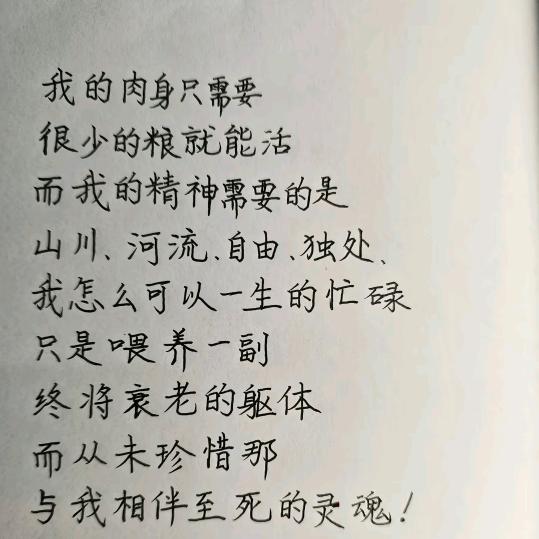 我的肉身只需要
很少的粮就能活
而我的精神需要的是
山川、河流、自由、独处、
我怎么可以一生的忙碌
只是喂养一副
终将衰老的躯体
而从未珍惜那
与我相伴至死的灵魂!